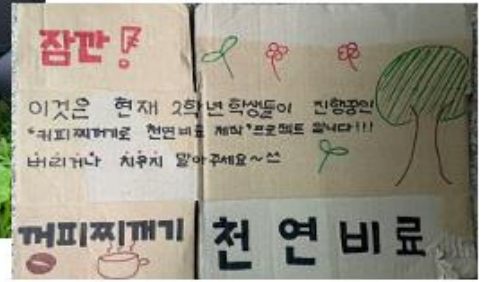 잠깐!
이것은 현재 2학년 학생들이 진행중인
"커피찌꺼기로 천연비료 제작" 프로젝트 입니다!!!
버리거나 치우지 말아주세요~^^
커피찌꺼기 천연비료